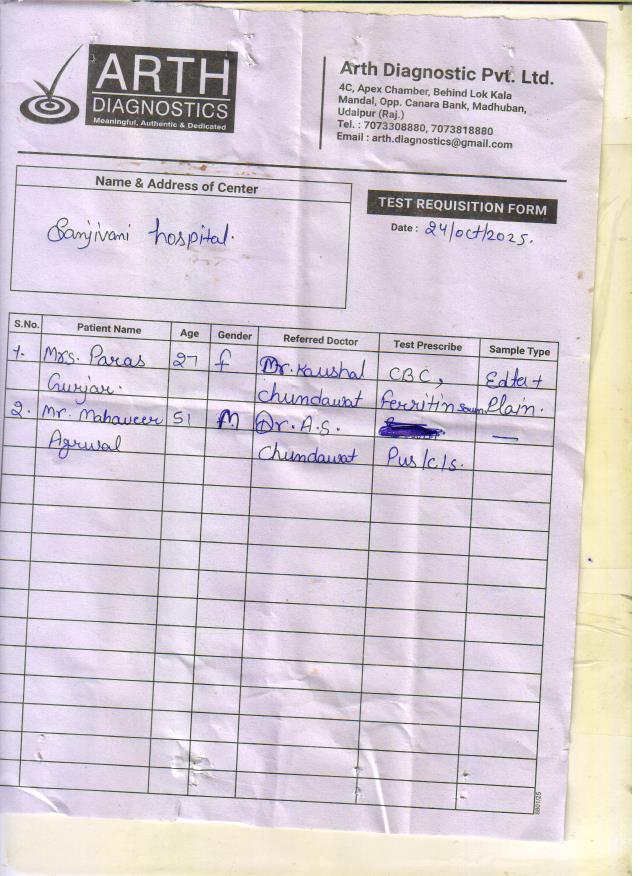 ARTH
DIAGNOSTICS
Meaningful, Authentic & Dedicated
Arth Diagnostic Pvt. Ltd.
4C, Apex Chamber, Behind Lok Kala
Mandal, Opp. Canara Bank, Madhuban,
Udaipur (Raj.)
Tel. : 7073308880, 7073818880
Email : arth.diagnostics@gmail.com
Name & Address of Center
Sanjivani hospital.
TEST REQUISITION FORM
Date : 24/oct/2025.
S.No. Patient Name Age Gender Referred Doctor Test Prescribe Sample Type
1. Mrs. Paras 27 f Mr. Kaushal CBC, Edta +
Gurjar. Chundawat Ferritin Plain.
2. Mr. Mahaveer 51 M Dr. A.S. —
Agrwal Chundawat Pus/c/s.
8801/25